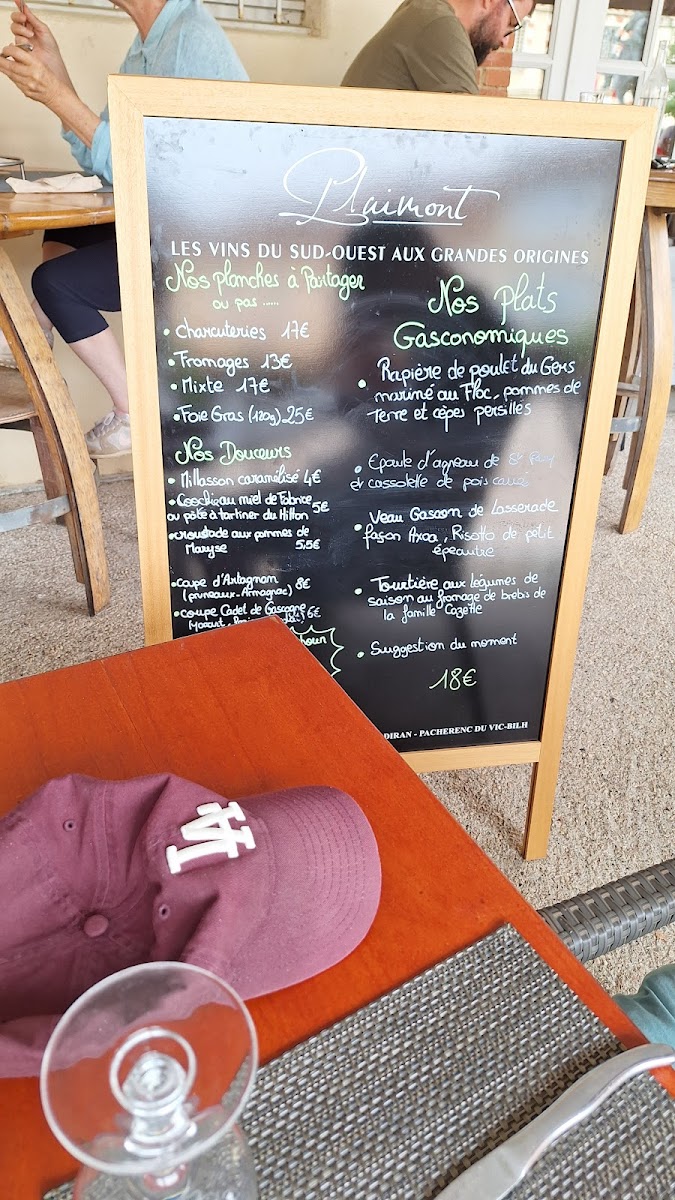 Plaimont
LES VINS DU SUD-OUEST AUX GRANDES ORIGINES
Nos planches à Partager
ou pas ......
• Charcuteries 17€
• Fromages 13€
• Mixte 17€
• Foie Gras (120g) 25€
Nos Douceurs
• Millasson caramélisé 4€
au miel de Fabrice
ou pâte à tartiner du Hilton 5€
• croustade aux pommes de
Maryse 5,5€
• coupe d'Artagnan
(pruneaux-Armagnac) 8€
• coupe Cadet de Gascogne
6€
Nos Plats
Gasconomiques
• Rapière de poulet du Gers
mariné au Floc, pommes de
Terre et cèpes persillés
• Epaule d'agneau de
et cassolette de pois
• Veau Gascon de Lasserade
façon Axoa, Risotto de petit
épeautre
• Tourtière aux légumes de
saison au fromage de brebis de
la famille Cazette
• Suggestion du moment
18€
DIRAN - PACHERENC DU VIC-BILH
LA